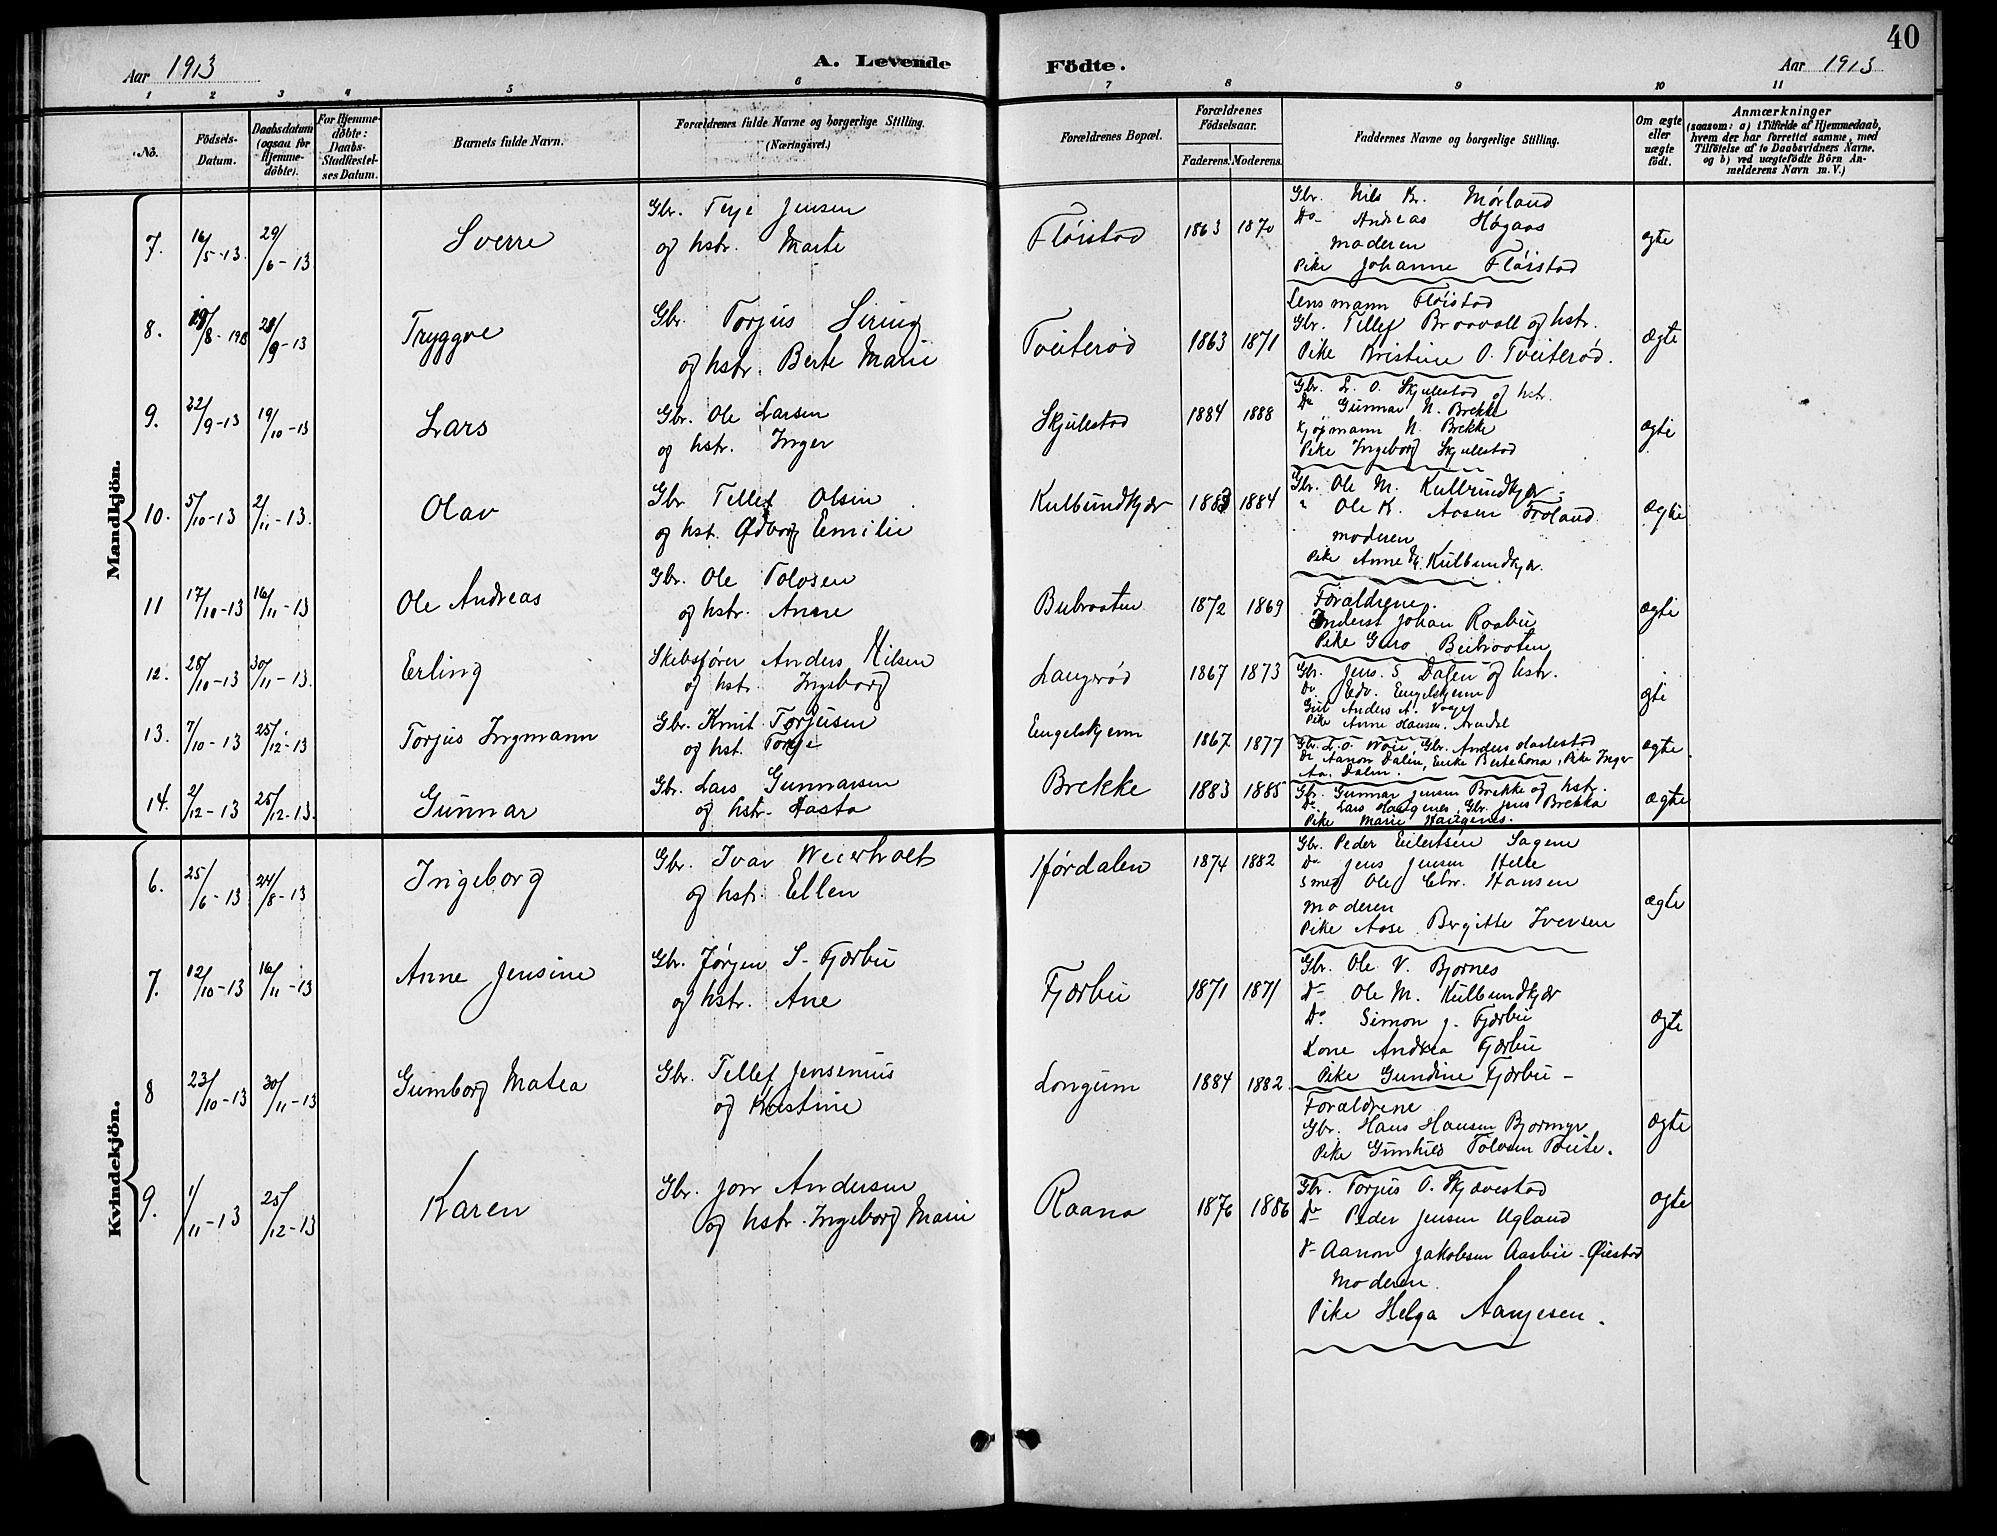 40
Aar 1913
A. Levende Födte.
Aar 1913
1 2 3 4 5 6 7 8 9 10 11
No.
Födsels-
Datum.
Daabsdatum
(ogsaa for
Hjemme-
döbte).
For Hjemme-
döbte:
Daabs-
Stadfæstel-
ses Datum.
Barnets fulde Navn.
Forældrenes fulde Navne og borgerlige Stilling.
(Næringsvei.)
Forældrenes Bopæl.
Forældrenes
Födselsaar.
Faderens. Moderens.
Faddernes Navne og borgerlige Stilling.
Om ægte
eller
uægte
födt.
Anmærkninger
(saasom: a) i Tilfælde af Hjemmedaab,
hvem der har forrettet samme, med
Tilföielse af to Daabsvidners Navne.
og b) ved uægtefödte Börn An-
melderens Navn m. V.)
Mandkjön.
7. 16/5-13. 29/6-13 Sverre
Gbr. Terje Jensen
og hstr. Marte
Fløistad 1863 1870
Gbr. Nils Br. Mørland
Do Andreas Høgaas
moderen
Pike Johanne Fløistad
ægte
8. 28/9-13 Tryggve
Gbr. Torjus Siring
og hstr. Berte Marie
Tveiterød 1863 1871
Lensmann Fløistad
Gbr. Tellef Braavoll og hstr.
Pike Kristine O. Tveiterød.
ægte
9. 22/9-13 19/10-13 Lars
Gbr. Ole Larsen
og hstr. Inger
Skjulestad 1884 1888
Gbr. L. O. Skjulestad og hstr.
Do Gunnar N. Brekke
Kjøpmann N. Brekke
Pike Ingeborg Skjulestad
ægte
10. 5/10-13 2/11-13. Olav
Gbr Tellef Olsen
og hst. Ødborg Emilie
Kulbundkjær 1883 1884
Gbr. Ole M. Kulbundkjær
" Ole K. Aasen Froland
moderen
Pike Anne M. Kulbundkjær.
ægte
11 17/10-13 16/11-13 Ole Andreas
Gbr. Ole Tolvsen
og hstr. Anne
Bubraaten 1872 1869
Forældrene.
Inderst Johan Raabu
Pike Guro Bubraaten
ægte
12. 28/10-13 30/11-13. Erling
Skibsfører Anders Nilsen
og hstr. Ingeborg
Langerød 1867 1873
Gbr. Jens. S. Dalen og hstr.
Do. Edv. Engelskjenn
Gut Anders A.
Pike Anne Hansen. Arendal
gte
13. 7/10-13 25/12-13 Torjus Ingmann
Gbr. Knut Torjusen
og hst. Tonje
Engelskjenn 1867 1877
Gbr. L. O. Waie, Gbr. Anders Haslestad
Do Aanon Dalen, Enke Berte Lona, Pike Inger
Aa. Dalen.
ægte
14. 2/12-13 25/12-13. Gunnar
Gbr. Lars Gunnarsen
og hstr. Aasta
Brekke 1883 1885
Gbr. Gunnar Jensen Brekke og hstr.
Do. Lars Haugenes, Gbr. Jens Brekka
Pike Marie Haugenes.
ægte
Kvindekjön.
6. 25/6-13 24/8-13 Ingeborg
Gbr. Ivar Weierholt
og hstr. Ellen
Hørdalen 1874 1882
Gbr. Peder Eilertsen Sagene
Do Jens Jensen Helle
Smed Ole Chr. Hansen
Moderen
Pike Aase Birgitte Iversen
ægte
7. 12/10-13 16/11-13 Anne Jensine
Gbr. Jørgen S. Fjærbu
og hstr. Ane
Fjærbu 1871 1871
Gbr. Ole V. Bjornes
Do Ole M. Kulbundkjær
Do. Simon J. Fjærbu
Kone Andrea Fjærbu
Pike Gundine Fjærbu -
ægte
8 23/10-13 30/11-13 Gunborg Matea
Gbr. Tellef Jensenius
og Kristine
Longum 1884 1882.
Forældrene
Gbr. Hans Hansen Bjormyr
Pike Gunhild Tolvsen Tveite.
ægte
9. 1/11-13 25/12-13 Karen
Gbr. Jon Andersen
og hstr. Ingeborg Marie
Raana 1876 1886
Gbr. Torjus O. Skjævestad
Do Peder Jensen Ugland
Do Aanon Jakobsen Aasbie - Øiestad
Moderen.
Pike Helga Aanjesen.
ægte